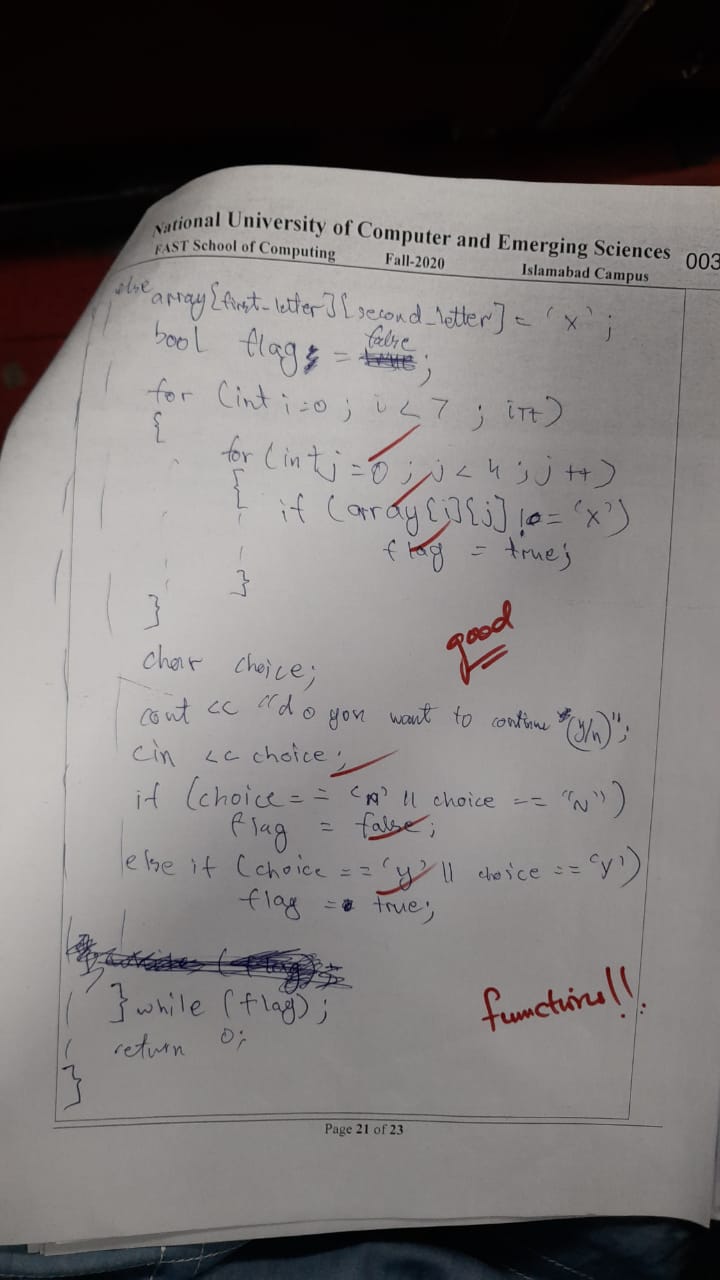 National University of Computer and Emerging Sciences 003
FAST School of Computing Fall-2020 Islamabad Campus
else array[first_letter][second_letter] = 'x';
bool flag = false;
for (int i=0; i<7; i++)
{
for (int j=0; j<4; j++)
{ if (array[i][j] != 'x')
flag = true;
}
}
good
char choice;
cout << "do you want to continue (y/n)";
cin << choice;
if (choice == 'n' || choice == "N")
flag = false;
else if (choice == 'y' || choice == 'Y')
flag = true;
} while (flag);
functions!!
return 0;
}
Page 21 of 23